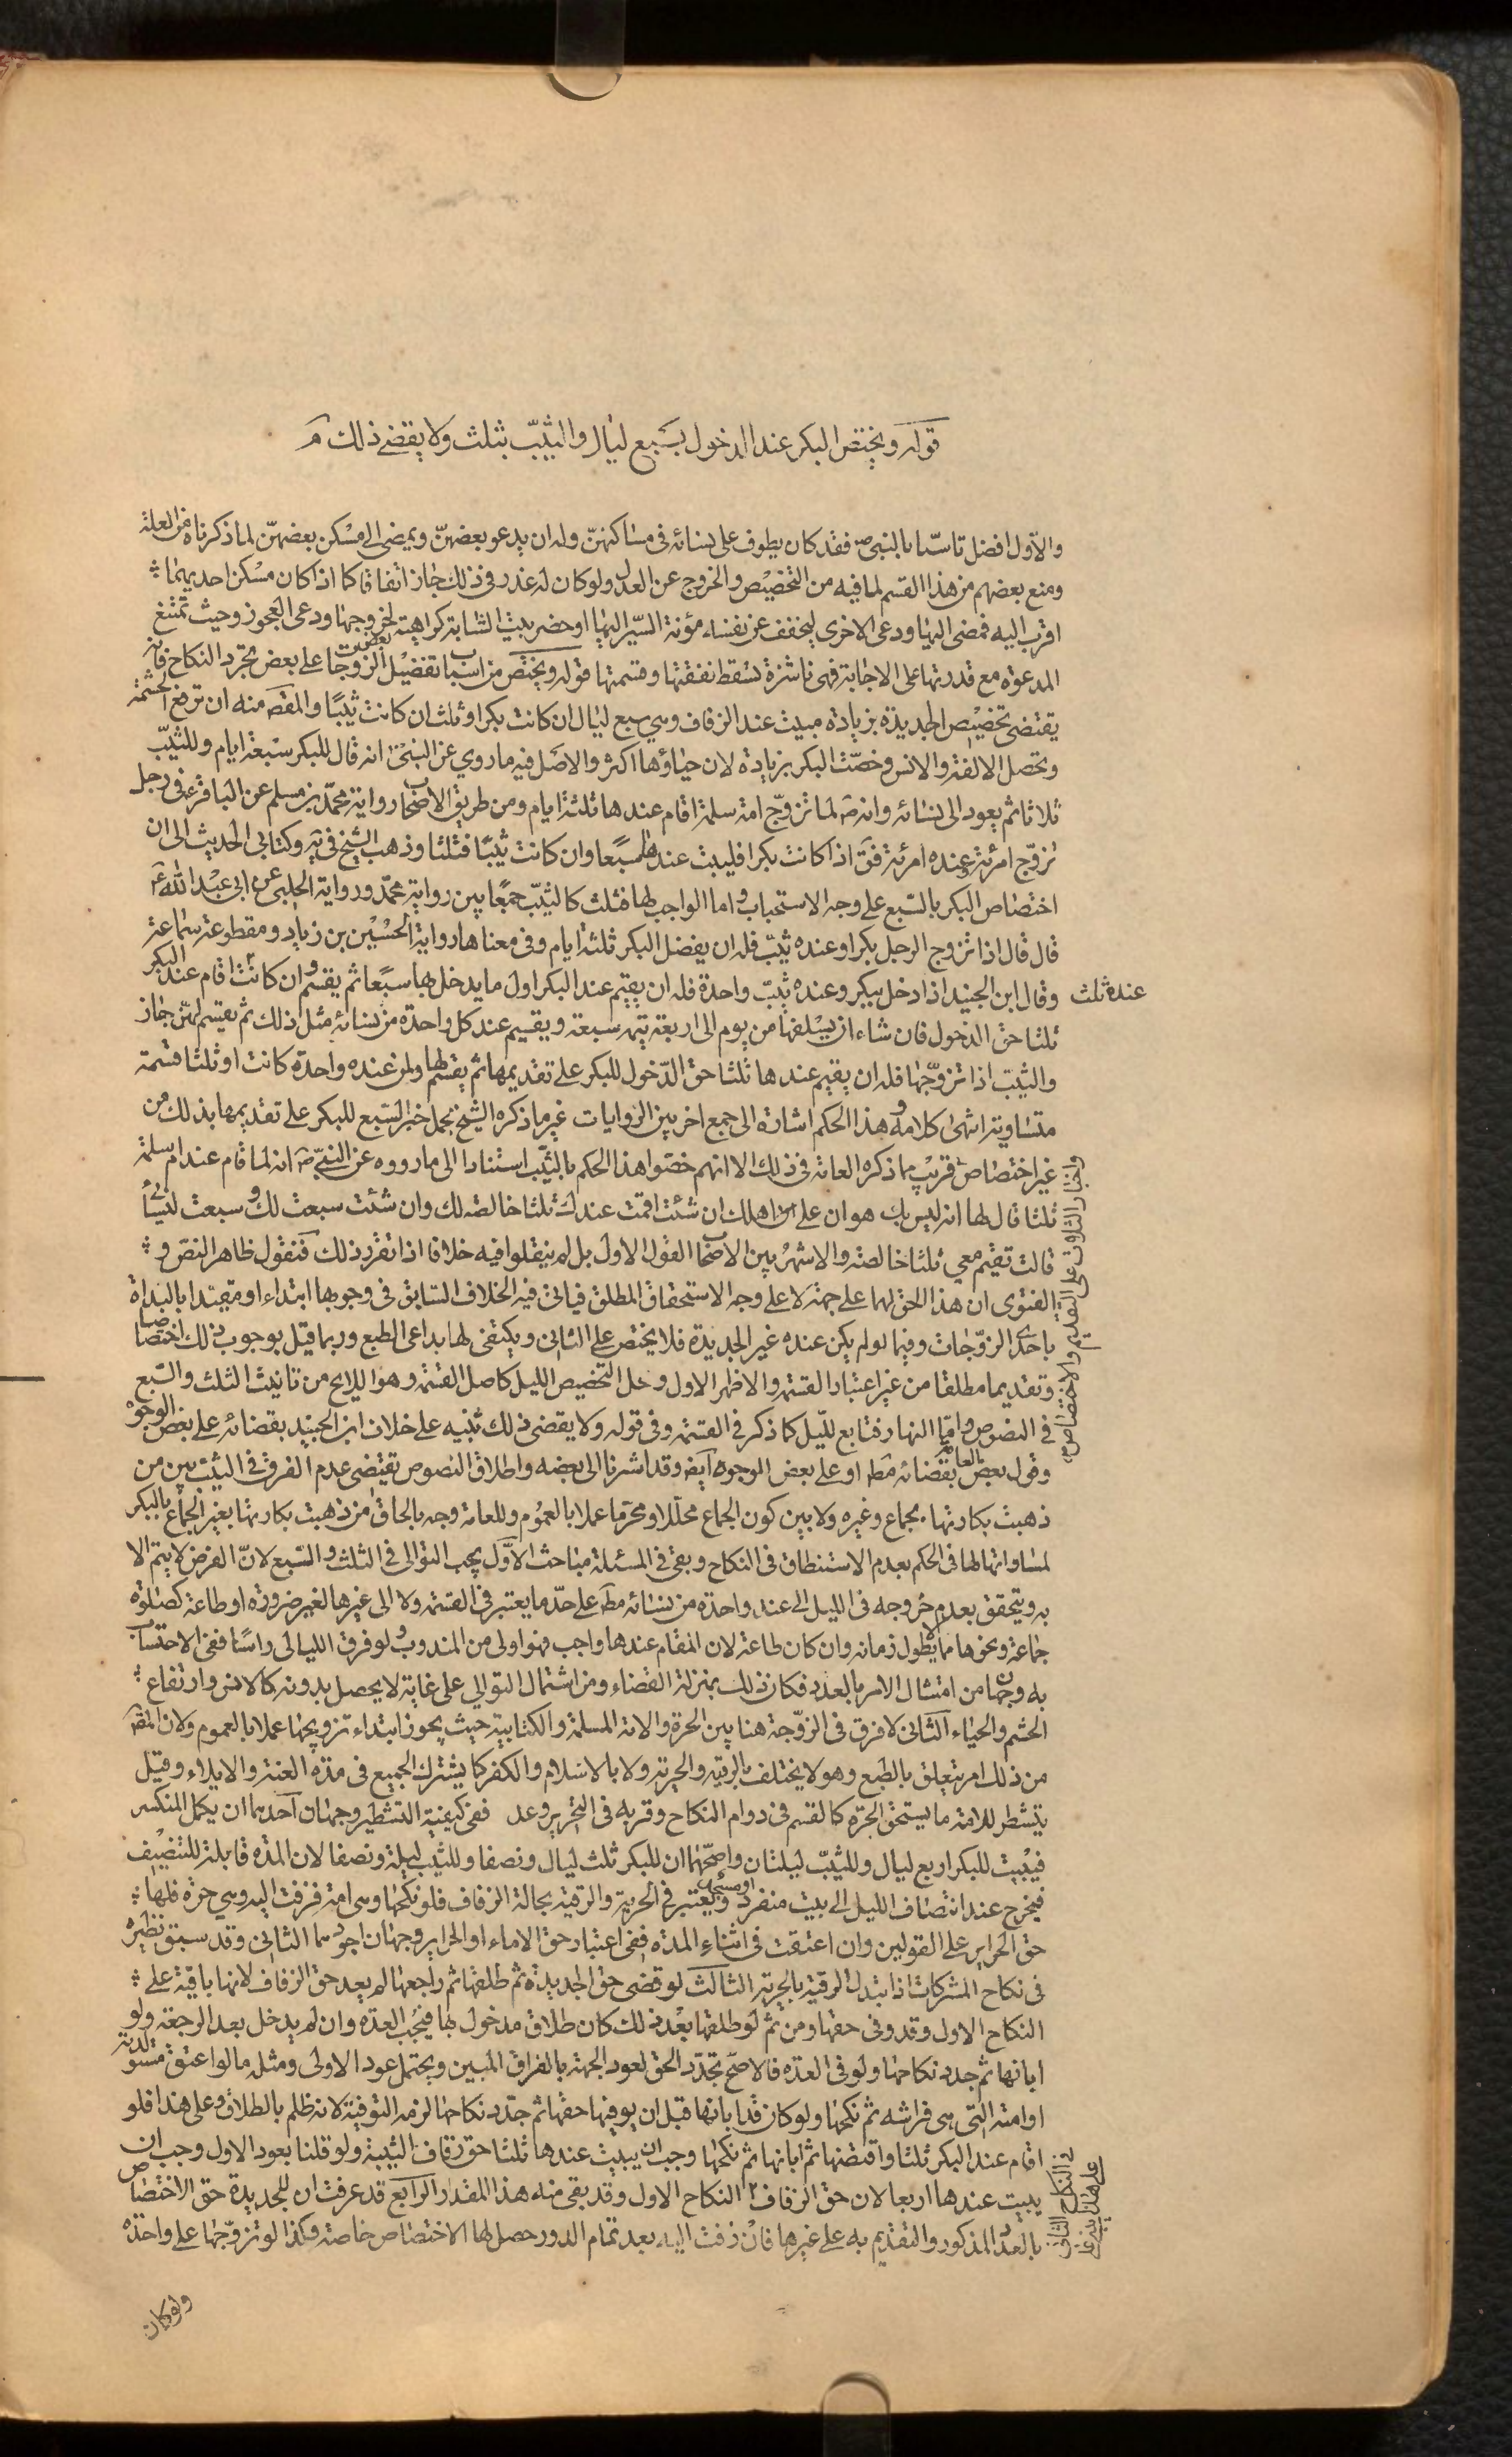 قوله ويختص البكر عند الدخول بسبع ليال والثيّب بثلث ولا يقضى ذلك م
والاول افضل تاسّيا بالنبي ص فقد كان يطوف على نسائه فى مساكنهنّ وله ان يدعو بعضهنّ ويمضى الى مسكن بعضهنّ لما ذكرناه من العلة
ومنع بعضهم من هذا القسم لما فيه من التخصيص والخروج عن العدل ولو كان له عذر فى ذلك جاز اتفاقا كما اذا كان مسكن احديهما
اقرب اليه فمضى اليها ودعى الاخرى ليخفف عن نفسه مؤنة السير اليها او حضر بيت الشابة كراهية لخروجها ودعى العجوز وحيث تمتنع
المدعوة مع قدرتها على الاجابة فهى ناشزة تسقط نفقتها وقسمتها قوله ويختص من اسباب تفضيل بعض الزوجات على بعض تجرد النكاح فانه
يقتضى تخصيص الجديدة بزيادة مبيت عند الزفاف وهي سبع ليال ان كانت بكرا وثلث ان كانت ثيّبا والمقصد منه ان ترتفع الحشمة
وتحصل الالفة والانس وخصّت البكر بزيادة لان حياؤها اكثر والاصل فيه ما روي عن النبي ص انه قال للبكر سبعة ايام وللثيّب
ثلاثا ثم يعود الى نسائه وانه ص لما تزوّج ام سلمة اقام عندها ثلثة ايام ومن طريق الاصحاب رواية محمّد بن مسلم عن الباقر ع فى رجل
تزوّج امرئة وعنده امرئة فق اذا كانت بكرا فليبت عندها سبعا وان كانت ثيّبا فثلثا وذهب الشيخ فى يه وكتابي الحديث الى ان
اختصاص البكر بالسّبع على وجه الاستحباب واما الواجب لها فثلث كالثيّب جمعا بين رواية محمّد ورواية الحلبى عن ابى عبد الله ع
قال قال اذا تزوج الرجل بكرا وعنده ثيّب فله ان يفضل البكر ثلثة ايام وفى معناها رواية الحسين بن زياد ومقطوعة سماعة
وقال ابن الجنيد اذا دخل ببكر وعنده ثيّب واحدة فله ان يقيم عند البكر اول ما يدخل بها سبعا ثم يقسم وان كانت عنده ثلث اقام عند البكر
ثلثا حق الدخول فان شاء ان يسلفها من يوم الى اربعة تتمه سبعة ويقيم عند كل واحدة من نسائه مثل ذلك ثم يقسم لهنّ جاز
والثيّب اذا تزوّجها فله ان يقيم عندها ثلثا حق الدّخول للبكر على تقديمها ثم يقسم لها ولمن عنده واحدة كانت او ثلثا قسمة
متساوية انتهى كلامه وهذا الحكم اشارة الى جمع اخر بين الروايات غير ما ذكره الشيخ بحمل اخبار السّبع للبكر على تقديمها بذلك من
غير اختصاص قريب مما ذكره العامة فى ذلك الا انهم خصّوا هذا الحكم بالثيّب استنادا الى ما رووه عن النبي ص انه لما قام عند ام سلمة
ثلثا قال لها انه ليس بك هوان على اهلك ان شئت اقمت عندك ثلثا خالصة لك وان شئت سبعت لك وسبعت لنسائى
قالت تقيم معي ثلثا خالصة والاشهر بين الاصحاب القول الاول بل لم ينقلوا فيه خلافا اذا تقرر ذلك فنقول ظاهر النص و
الفتوى ان هذا الحق لهما على جهة لا على وجه الاستحقاق المطلق فياتى فيه الخلاف السابق فى وجوبها ابتداء او مقيّدا بالبداة
باحدى الزوّجات وفيما لو لم يكن عنده غير الجديدة فلا يختص على الثانى ويكتفى لها بداعى الطبع وربما قيل بوجوب ذلك اختصاصا
وتقديما مطلقا من غير اعتبار القسمة والاظهر الاول ومحل التخصيص الليل كاصل القسمة وهو اللايح من تانيث الثلث والسّبع
فى النصوص وامّا النهار فتابع للّيل كما ذكر فى القسمة وفى قوله ولا يقضى ذلك تنبيه على خلاف ابن الجنيد بقضائه على بعض الوجوه
وقول بعض العامة بقضائه مطـ او على بعض الوجوه ايضـ وقد اشرنا الى بعضه واطلاق النصوص تقتضى عدم الفرق فى الثيّب بين من
ذهبت بكارتها بجماع وغيره ولا بين كون الجماع محللا ومحرّما عملا بالعموم وللعامة وجه بالحاق من ذهبت بكارتها بغير الجماع بالبكر
لمساواتها لها فى الحكم بعدم الاستنطاق فى النكاح وبقى فى المسئلة مباحث الاوّل يجب التوالى فى الثلث والسّبع لانّ الغرض لا يتم الا
به ويتحقق بعدم خروجه فى الليل الى عند واحدة من نسائه مطـ على حدّ ما يعتبر فى القسمة ولا الى غيرها لغير ضرورة او طاعة كصلوة
جماعة ونحوها مما لا يطول زمانه وان كان طاعة لان المقام عندها واجب فهو اولى من المندوب ولو فرق الليالى واسا ففى الاحتساب
به وجهان من امتثال الامر بالعدد فكان ذلك بمنزلة القضاء ومن اشتمال التوالي على غاية لا يحصل بدونه كالانس وارتفاع
الحشم والحياء الثانى لا فرق فى الزوّجة هنا بين الحرة والامة المسلمة والكتابية حيث يجوز ابتداء تزويجها عملا بالعموم ولان المقصد
من ذلك امر يتعلق بالطبع وهو لا يختلف بالرقية والحرية ولا بالاسلام والكفر كما يشترك الجميع فى مدة العنة والايلاء وقيل
يتشطر للامة ما يستحق الحرة كالقسم فى دوام النكاح وقربه فى التحرير وعد ففى كيفية التشطير وجهان احدهما ان يكمل المنكسر
فيبيت للبكر اربع ليال وللثيّب ليلتان واصحّهما ان للبكر ثلث ليال ونصفا وللثيّب ليلة ونصفا لان المدة قابلة للتنصيف
فيخرج عند انتصاف الليل الى بيت منفرد او مسجد ويعتبر فى الحرية والرقية بحالة الزفاف فلو نكحها وهى امة فزفت اليه وهي حرة فلها
حق الحراير على القولين وان اعتقت فى اثناء المدة ففى اعتبار حق الاماء او الحراير وجهان اجودهما الثانى وقد سبق نظيره
فى نكاح المشركات اذا تبدلت الرقية بالحرية الثالث لو قضى حق الجديدة ثم طلقها ثم راجعها لم يعد حق الزفاف لانها باقية على
النكاح الاول وقد وفى حقها ومن ثم لو طلقها بعد ذلك كان طلاق مدخول بها فيجب العدة وان لم يدخل بعد الرجعة ولو
ابانها ثم جدد نكاحها ولو فى العدة فالاصح تجدّد الحق لعود الجهة بالفراق المبين ويحتمل عود الاولى ومثله ما لو اعتق مستولدته
او امته التى هى فراشه ثم نكحها ولو كان قد ابانها قبل ان يوفيها حقها ثم جدّد نكاحها لزمه التوفية لانه ظلم بالطلاق وعلى هذا فلو
اقام عند البكر ثلثا واقتضها ثم ابانها ثم نكحها وجب ان يبيت عندها ثلثا حق زفاف الثيبة ولو قلنا بعود الاول وجب ان
يبيت عندها اربعا لان حق الزفاف النكاح الاول وقد بقى منه هذا المقدار الرابع قد عرفت ان للجديدة حق الاختصاص
بالعدد المذكور والتقديم به على غيرها فان زفت اليه بعد تمام الدور حصل لها الاختصاص خاصة وكذا لو تزوّجها على واحدة
عنده ثلث
على التقديم والاختصاص
فى النكاح الثانى
على هذا
ولو كان